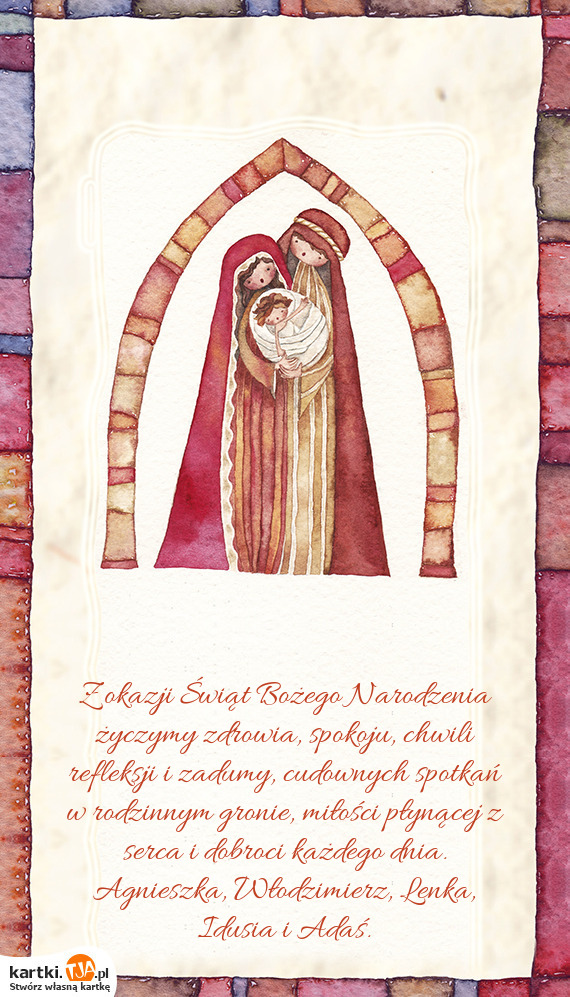 Z okazji Świąt Bożego Narodzenia
życzymy zdrowia, spokoju, chwili
refleksji i zadumy, cudownych spotkań
w rodzinnym gronie, miłości płynącej z
serca i dobroci każdego dnia.
Agnieszka, Włodzimierz, Lenka,
Idusia i Adaś.
kartki.TJA.pl
Stwórz własną kartkę